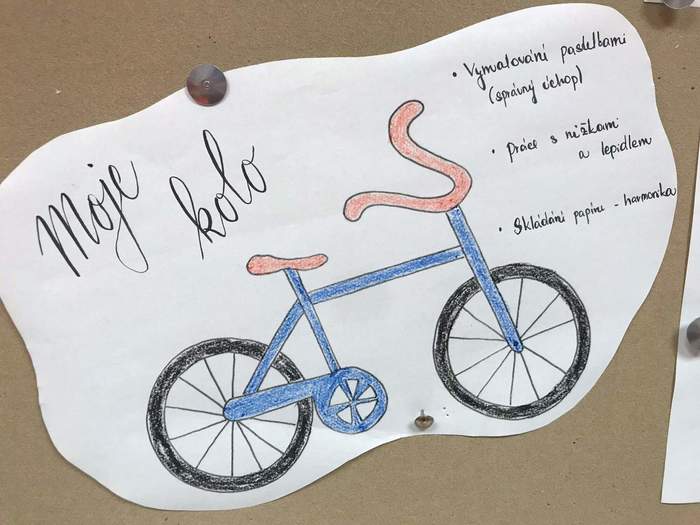 Moje
kolo
• Vymalování pastelkami
(správný úchop)
• Práce s nůžkami
a lepidlem
• Skládání papíru - harmonika